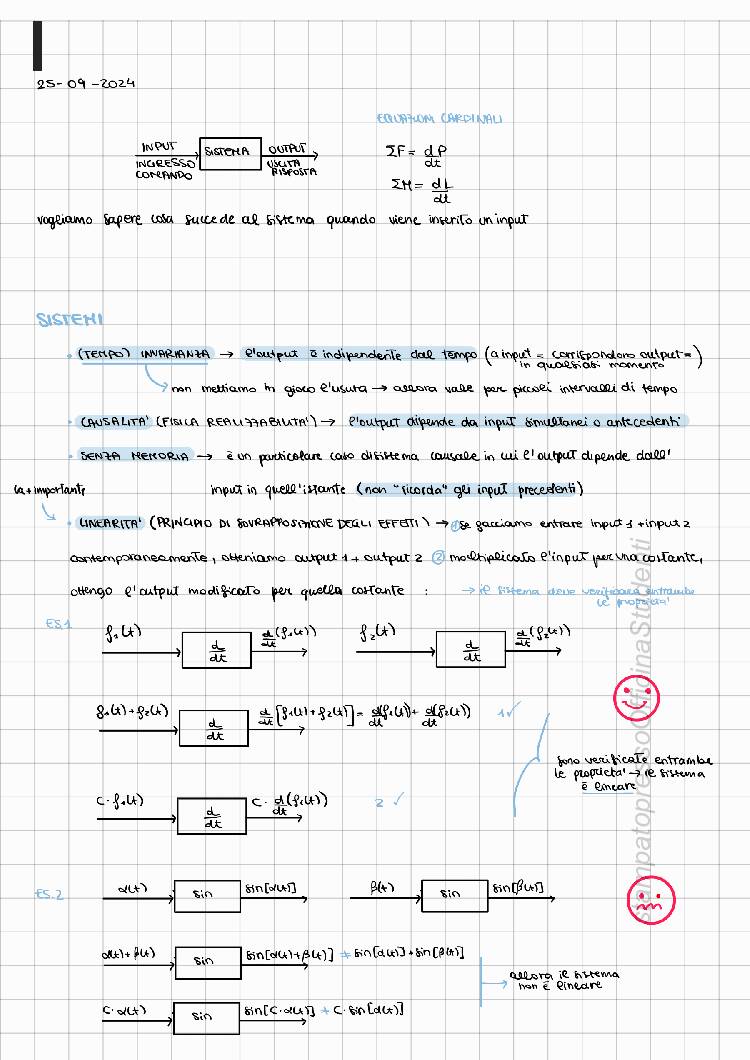 25-09-2024
EQUAZIONI CARDINALI
INPUT
INGRESSO
COMANDO
SISTEMA
OUTPUT
USCITA
RISPOSTA
ΣF = dP/dt
ΣM = dL/dt
vogliamo sapere cosa succede al sistema quando viene inserito un input
SISTEMI
• (TEMPO) INVARIANZA → l'output è indipendente dal tempo (a input = corrispondono output = in qualsiasi momento)
non mettiamo in gioco l'usura → allora vale per piccoli intervalli di tempo
• CAUSALITA' (FISICA REALIZZABILITA') → l'output dipende da input simultanei o antecedenti
• SENZA MEMORIA → è un particolare caso di sistema causale in cui l'output dipende dall'
la + importante
input in quell'istante (non "ricorda" gli input precedenti)
• LINEARITA' (PRINCIPIO DI SOVRAPPOSIZIONE DEGLI EFFETTI) → ① se facciamo entrare input 1 + input 2
contemporaneamente, otteniamo output 1 + output 2 ② moltiplicato l'input per una costante,
ottengo l'output modificato per quella costante : → il sistema deve verificare entrambe
le proprietà
ES.1
f₁(t) d/dt d/dt(f₁(t)) f₂(t) d/dt d/dt(f₂(t))
f₁(t)+f₂(t) d/dt d/dt[f₁(t)+f₂(t)] = d(f₁(t))/dt + d(f₂(t))/dt 1 ✓
sono verificate entrambe
le proprietà → il sistema
è lineare
C·f₁(t) d/dt C·d(f₁(t))/dt 2 ✓
ES.2
α(t) sin sin[α(t)] β(t) sin sin[β(t)]
α(t)+β(t) sin sin[α(t)+β(t)] ≠ sin[α(t)]+sin[β(t)]
allora il sistema
non è lineare
C·α(t) sin sin[C·α(t)] ≠ C·sin[α(t)]
stampatopressoOfficinaStudenti